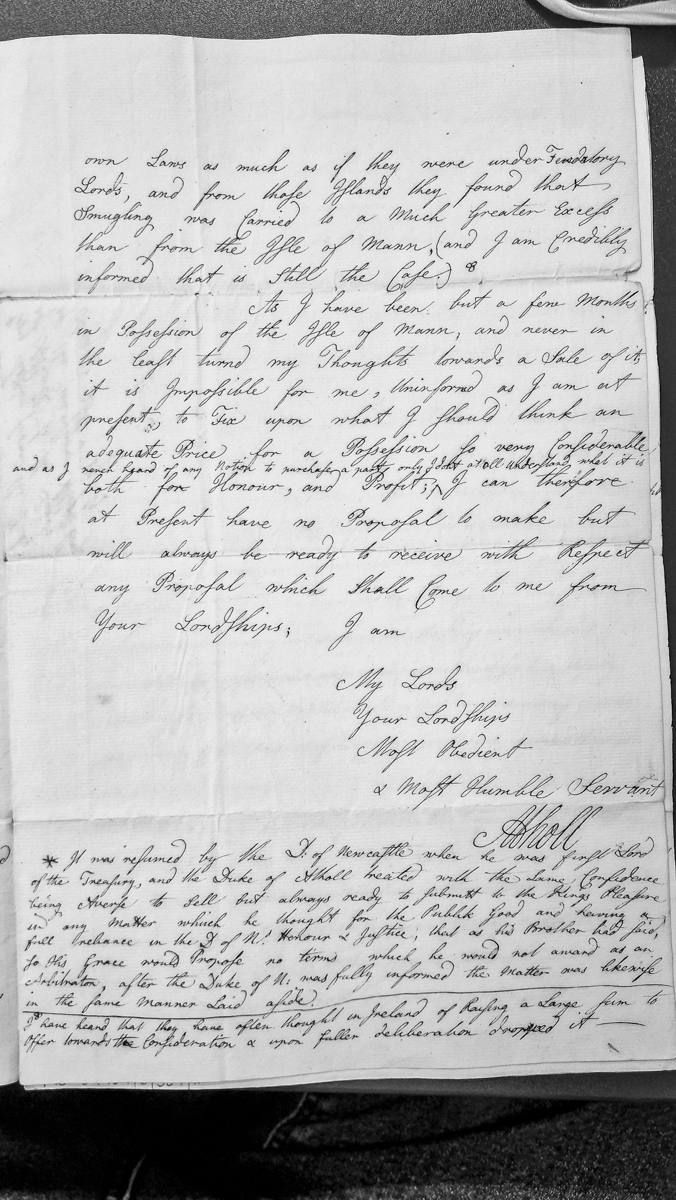 own Laws as much as if they were under Feudatory
Lords, and from those Islands they found that
Smugling was Carried to a Much Greater Excess
than from the Isle of Mann, (and I am Credibly
informed that is Still the Case.) 8
As I have been but a few Months
in Possession of the Isle of Mann, and never in
the least turnd my Thoughts towards a Sale of it,
it is Impossible for me, Uninformed as I am at
present, to Fix upon what I should think an
adequate Price for a Possession So very Considerable
and as I never heard of any Notion to purchase a party only I dont at all Understand what it is
both for Honour, and Profit; ^ I can therefore
at Present have no Proposal to make but
will always be ready to receive with Respect
any Proposal which Shall Come to me from
Your Lordships; I am
My Lords
Your Lordships
Most Obedient
& Most Humble Servant
Atholl
* It was resumed by the D: of Newcastle when he was first Lord
of the Treasury, and the Duke of Atholl treated with the Same Confidence
being Averse to Sell but always ready to Submitt to the Kings Pleasure
in any Matter which he thought for the Publick Good and having a
full Reliance in the D of N.s Honour & Justice, that as his Brother had said,
So His Grace would Propose no terms which he would not award as an
Arbitrator, after the Duke of N: was fully informed the Matter was likewise
in the same Manner Laid aside.
8 I have heard that they have often thought in Ireland of Raising a Large Sum to
Offer towards the Consideration & upon fuller deliberation dropped it —